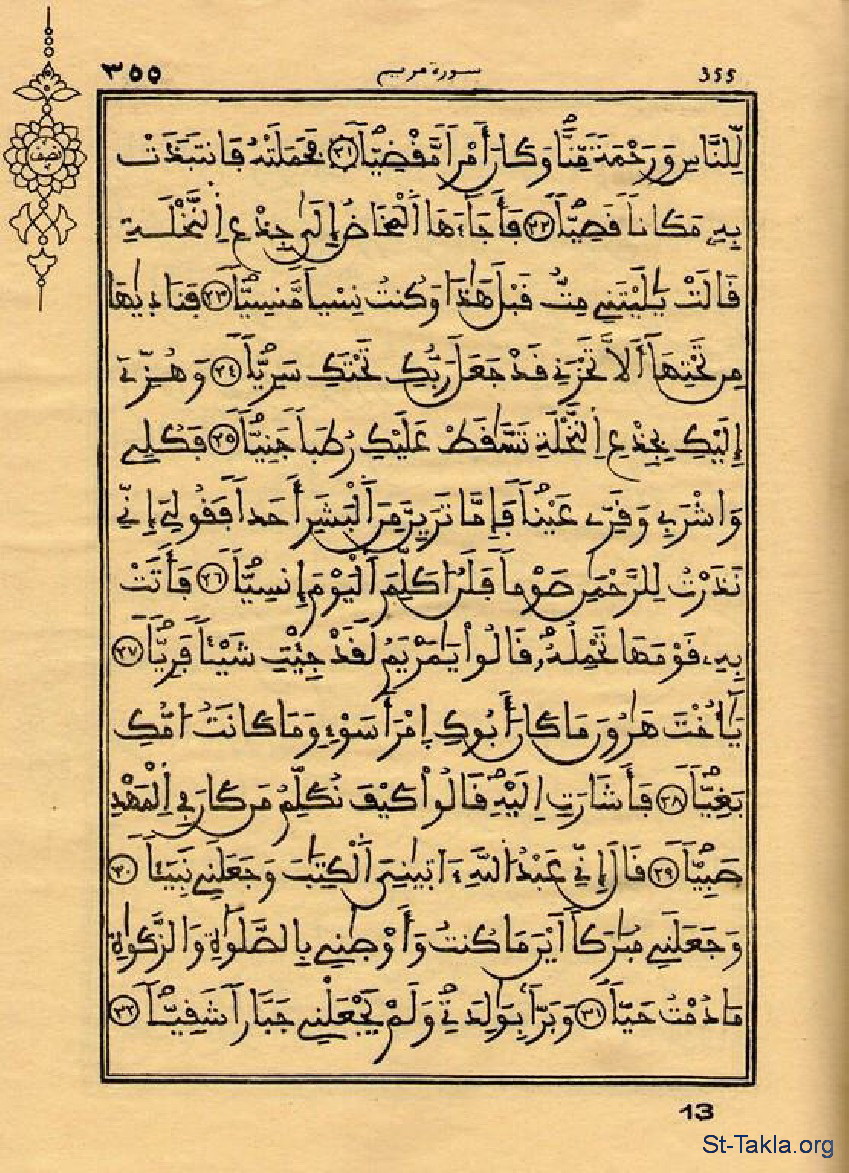 ٣٥٥ سورة مريم 355
نصف
لِّلنَّاسِ وَرَحْمَةً مِّنَّا وَكَانَ أَمْراً مَّقْضِيّاً ٢١ فَحَمَلَتْهُ فَانتَبَذَتْ
بِهِۦ مَكَاناً قَصِيّاً ٢٢ فَأَجَآءَهَا اَ۬لْمَخَاضُ إِلَىٰ جِذْعِ اِ۬لنَّخْلَةِ
قَالَتْ يَٰلَيْتَنِے مِتُّ قَبْلَ هَٰذَا وَكُنتُ نِسْياً مَّنسِيّاً ٢٣ فَنَادَىٰهَا
مِن تَحْتِهَآ أَلَّا تَحْزَنِے قَدْ جَعَلَ رَبُّكِ تَحْتَكِ سَرِيّاً ٢٤ وَهُزِّے
إِلَيْكِ بِجِذْعِ اِ۬لنَّخْلَةِ تَسَّٰقَطْ عَلَيْكِ رُطَباً جَنِيّاً ٢٥ فَكُلِے
وَاشْرَبِے وَقَرِّے عَيْناً فَإِمَّا تَرَيِنَّ مِنَ اَ۬لْبَشَرِ أَحَداً فَقُولِےٓ إِنِّے
نَذَرْتُ لِلرَّحْمَٰنِ صَوْماً فَلَنْ أُكَلِّمَ اَ۬لْيَوْمَ إِنسِيّاً ٢٦ فَأَتَتْ
بِهِۦ قَوْمَهَا تَحْمِلُهُۥ قَالُواْ يَٰمَرْيَمُ لَقَدْ جِئْتِ شَيْـٔاً فَرِيّاً ٢٧
يَٰٓأُخْتَ هَٰرُونَ مَا كَانَ أَبُوكِ اِ۪مْرَأَ سَوْءٖ وَمَا كَانَتُ ا۟مُّكِ
بَغِيّاً ٢٨ فَأَشَارَتِ اِلَيْهِ قَالُواْ كَيْفَ نُكَلِّمُ مَن كَانَ فِے اِ۬لْمَهْدِ
صَبِيّاً ٢٩ قَالَ إِنِّے عَبْدُ اُ۬للَّهِ ءَاتَيٰنِيَ اَ۬لْكِتَٰبَ وَجَعَلَنِے نَبِيٓـٔاً ٣٠
وَجَعَلَنِے مُبَٰرَكاً اَيْنَ مَا كُنتُ وَأَوْصَٰنِے بِالصَّلَوٰةِ وَالزَّكَوٰةِ
مَا دُمْتُ حَيّاً ٣١ وَبَرّاً بِوَٰلِدَتِے وَلَمْ يَجْعَلْنِے جَبَّاراً شَقِيّاً ٣٢
13
St-Takla.org